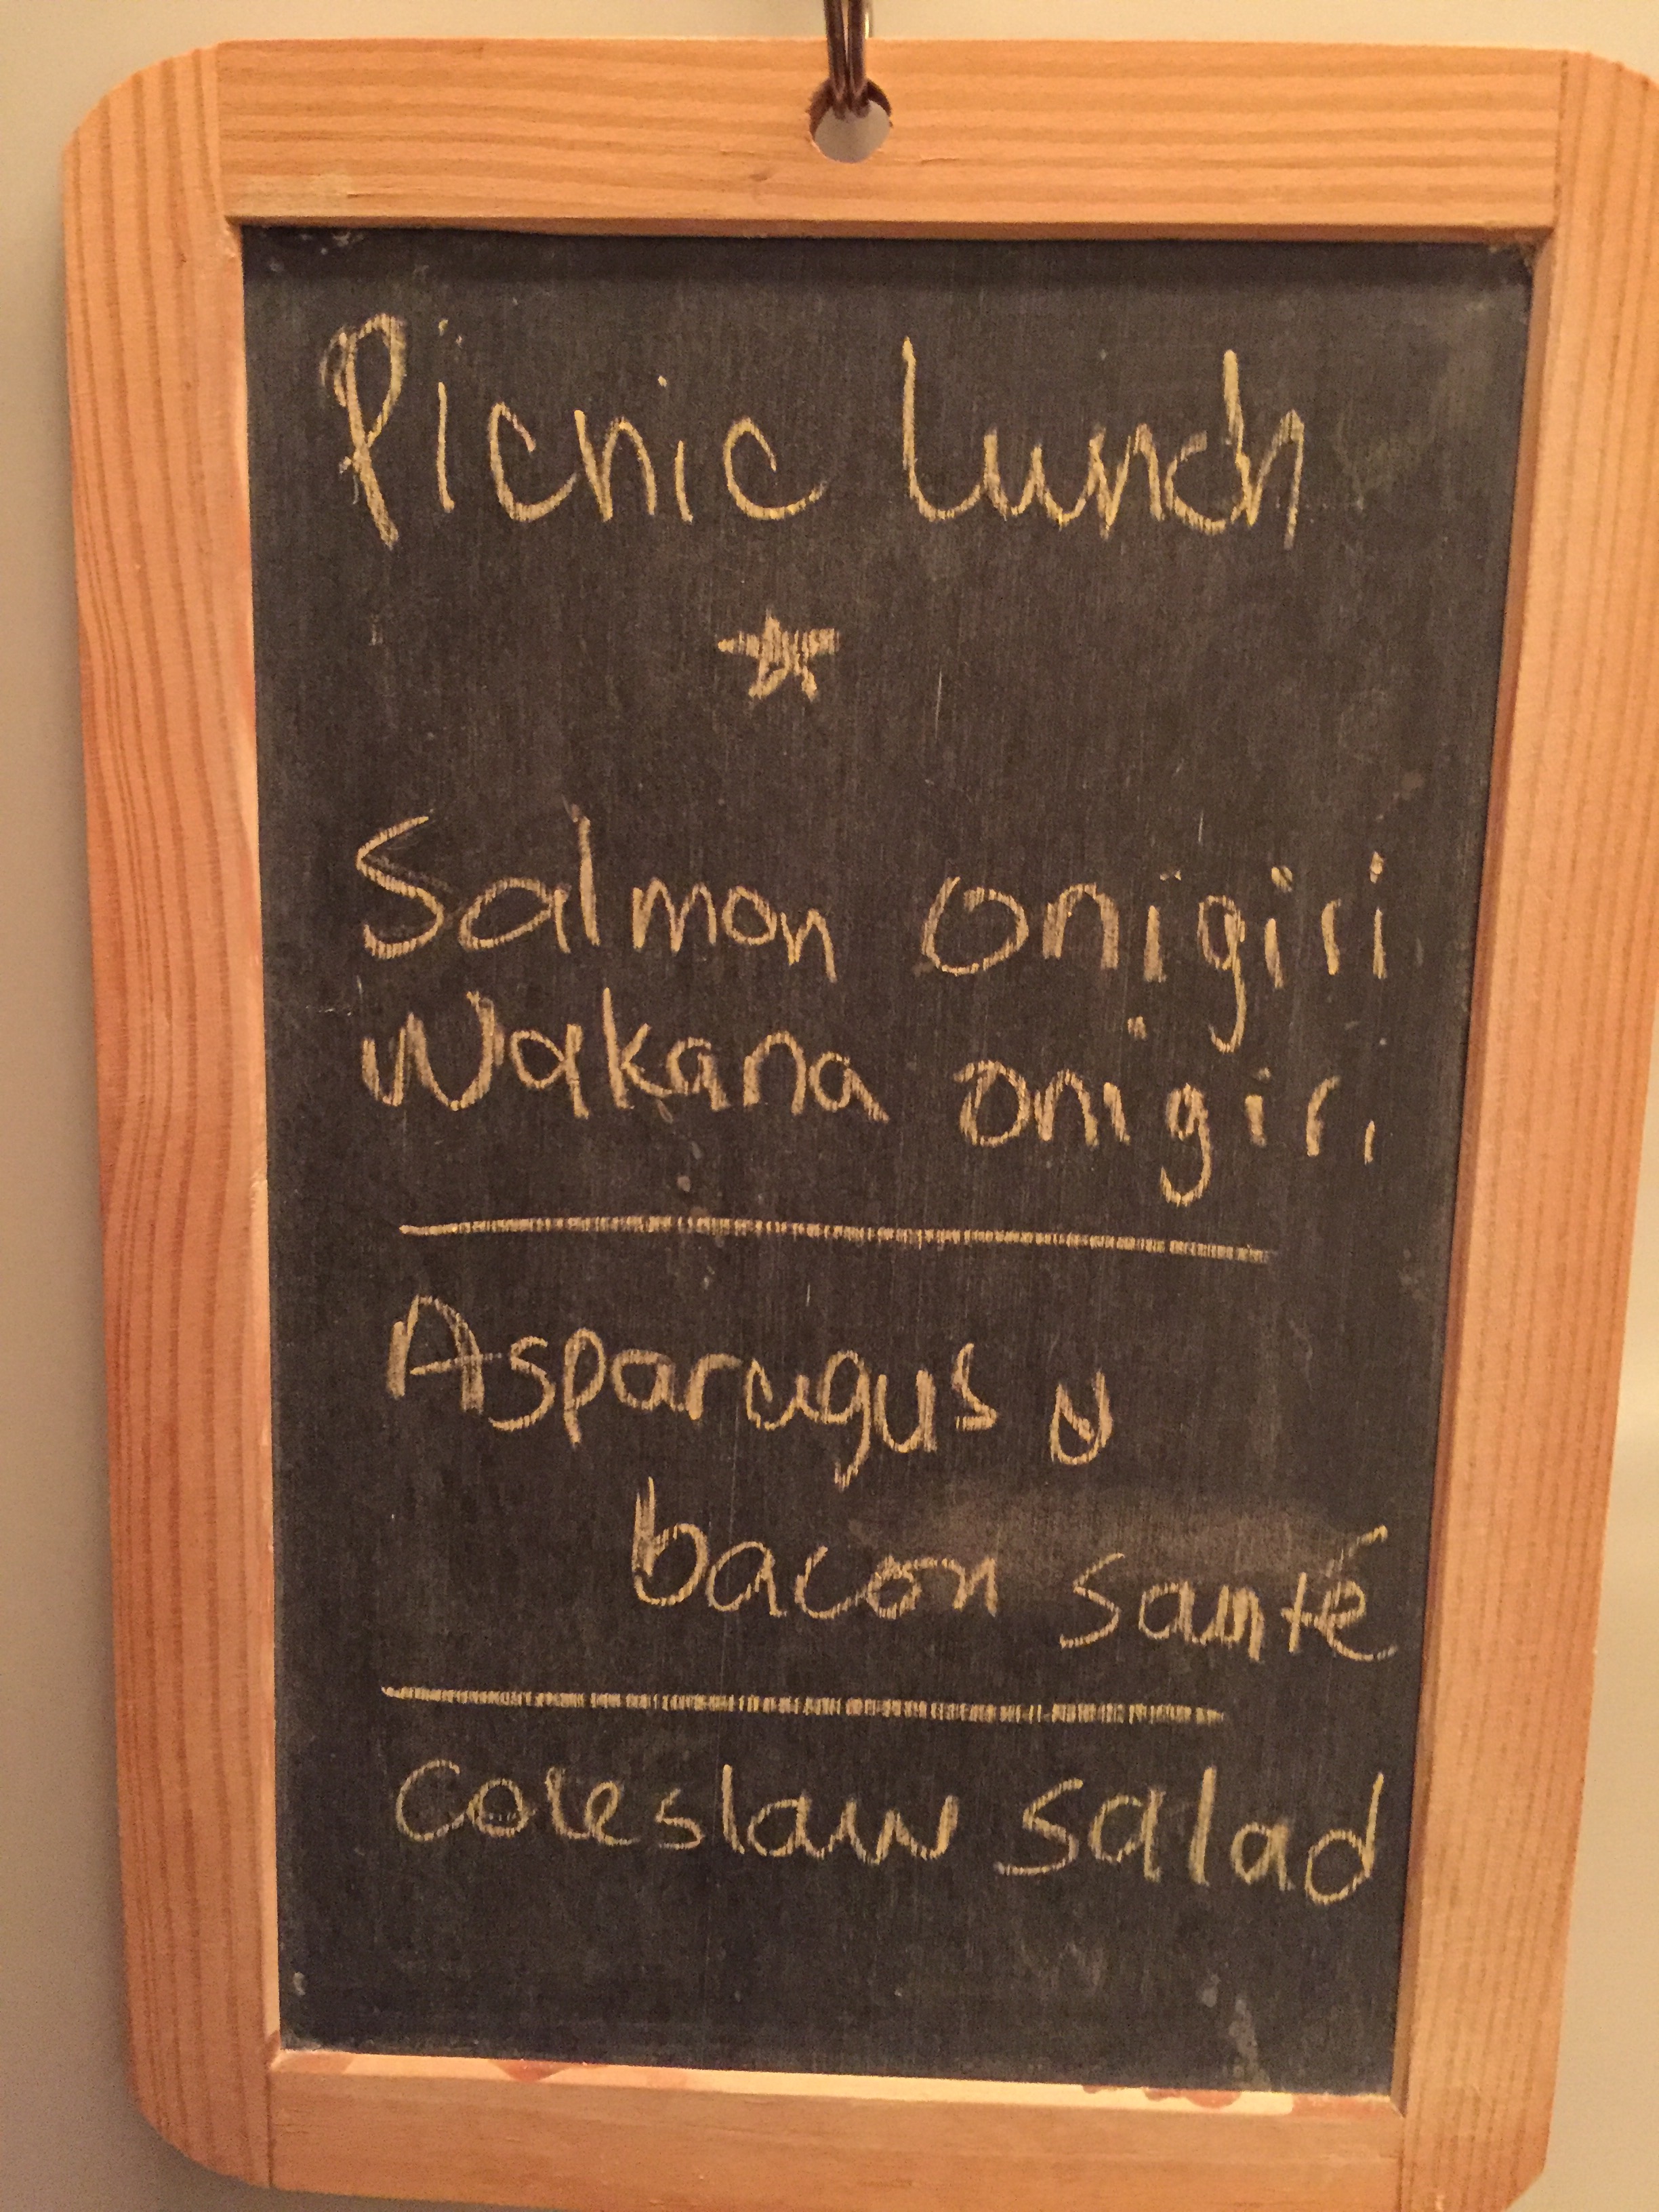 Picnic lunch
Salmon onigiri
Wakana onigiri
Asparagus
bacon santé
Coleslaw salad